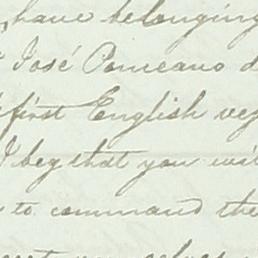 have belonging
José Pomeano d
first English ves
I beg that you wil
to command the